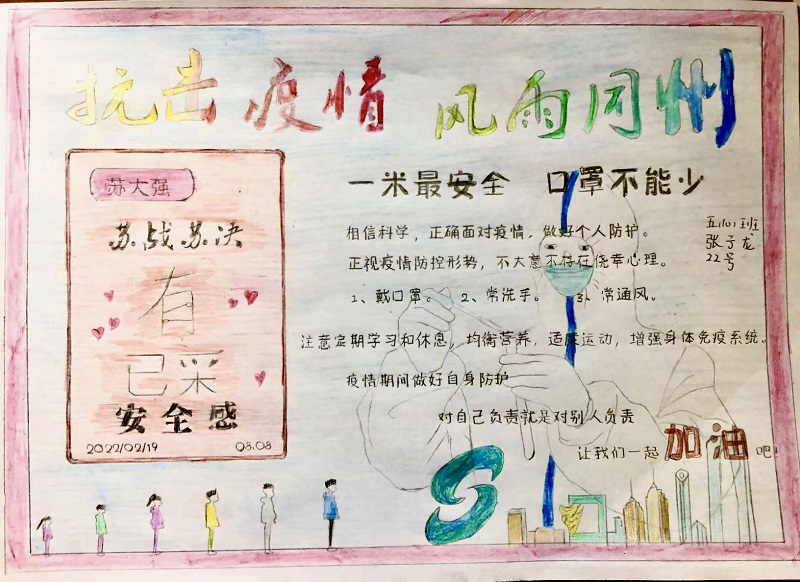 抗击疫情 风雨同州
苏大强
苏战苏决
有
已采
安全感
2022/02/19 08.08
一米最安全 口罩不能少
五(10)班
张子龙
22号
相信科学，正确面对疫情，做好个人防护。
正视疫情防控形势，不大意不存在侥幸心理。
1、戴口罩。 2、常洗手。 3、常通风。
注意定期学习和休息，均衡营养，适度运动，增强身体免疫系统。
疫情期间做好自身防护
对自己负责就是对别人负责
让我们一起加油吧！